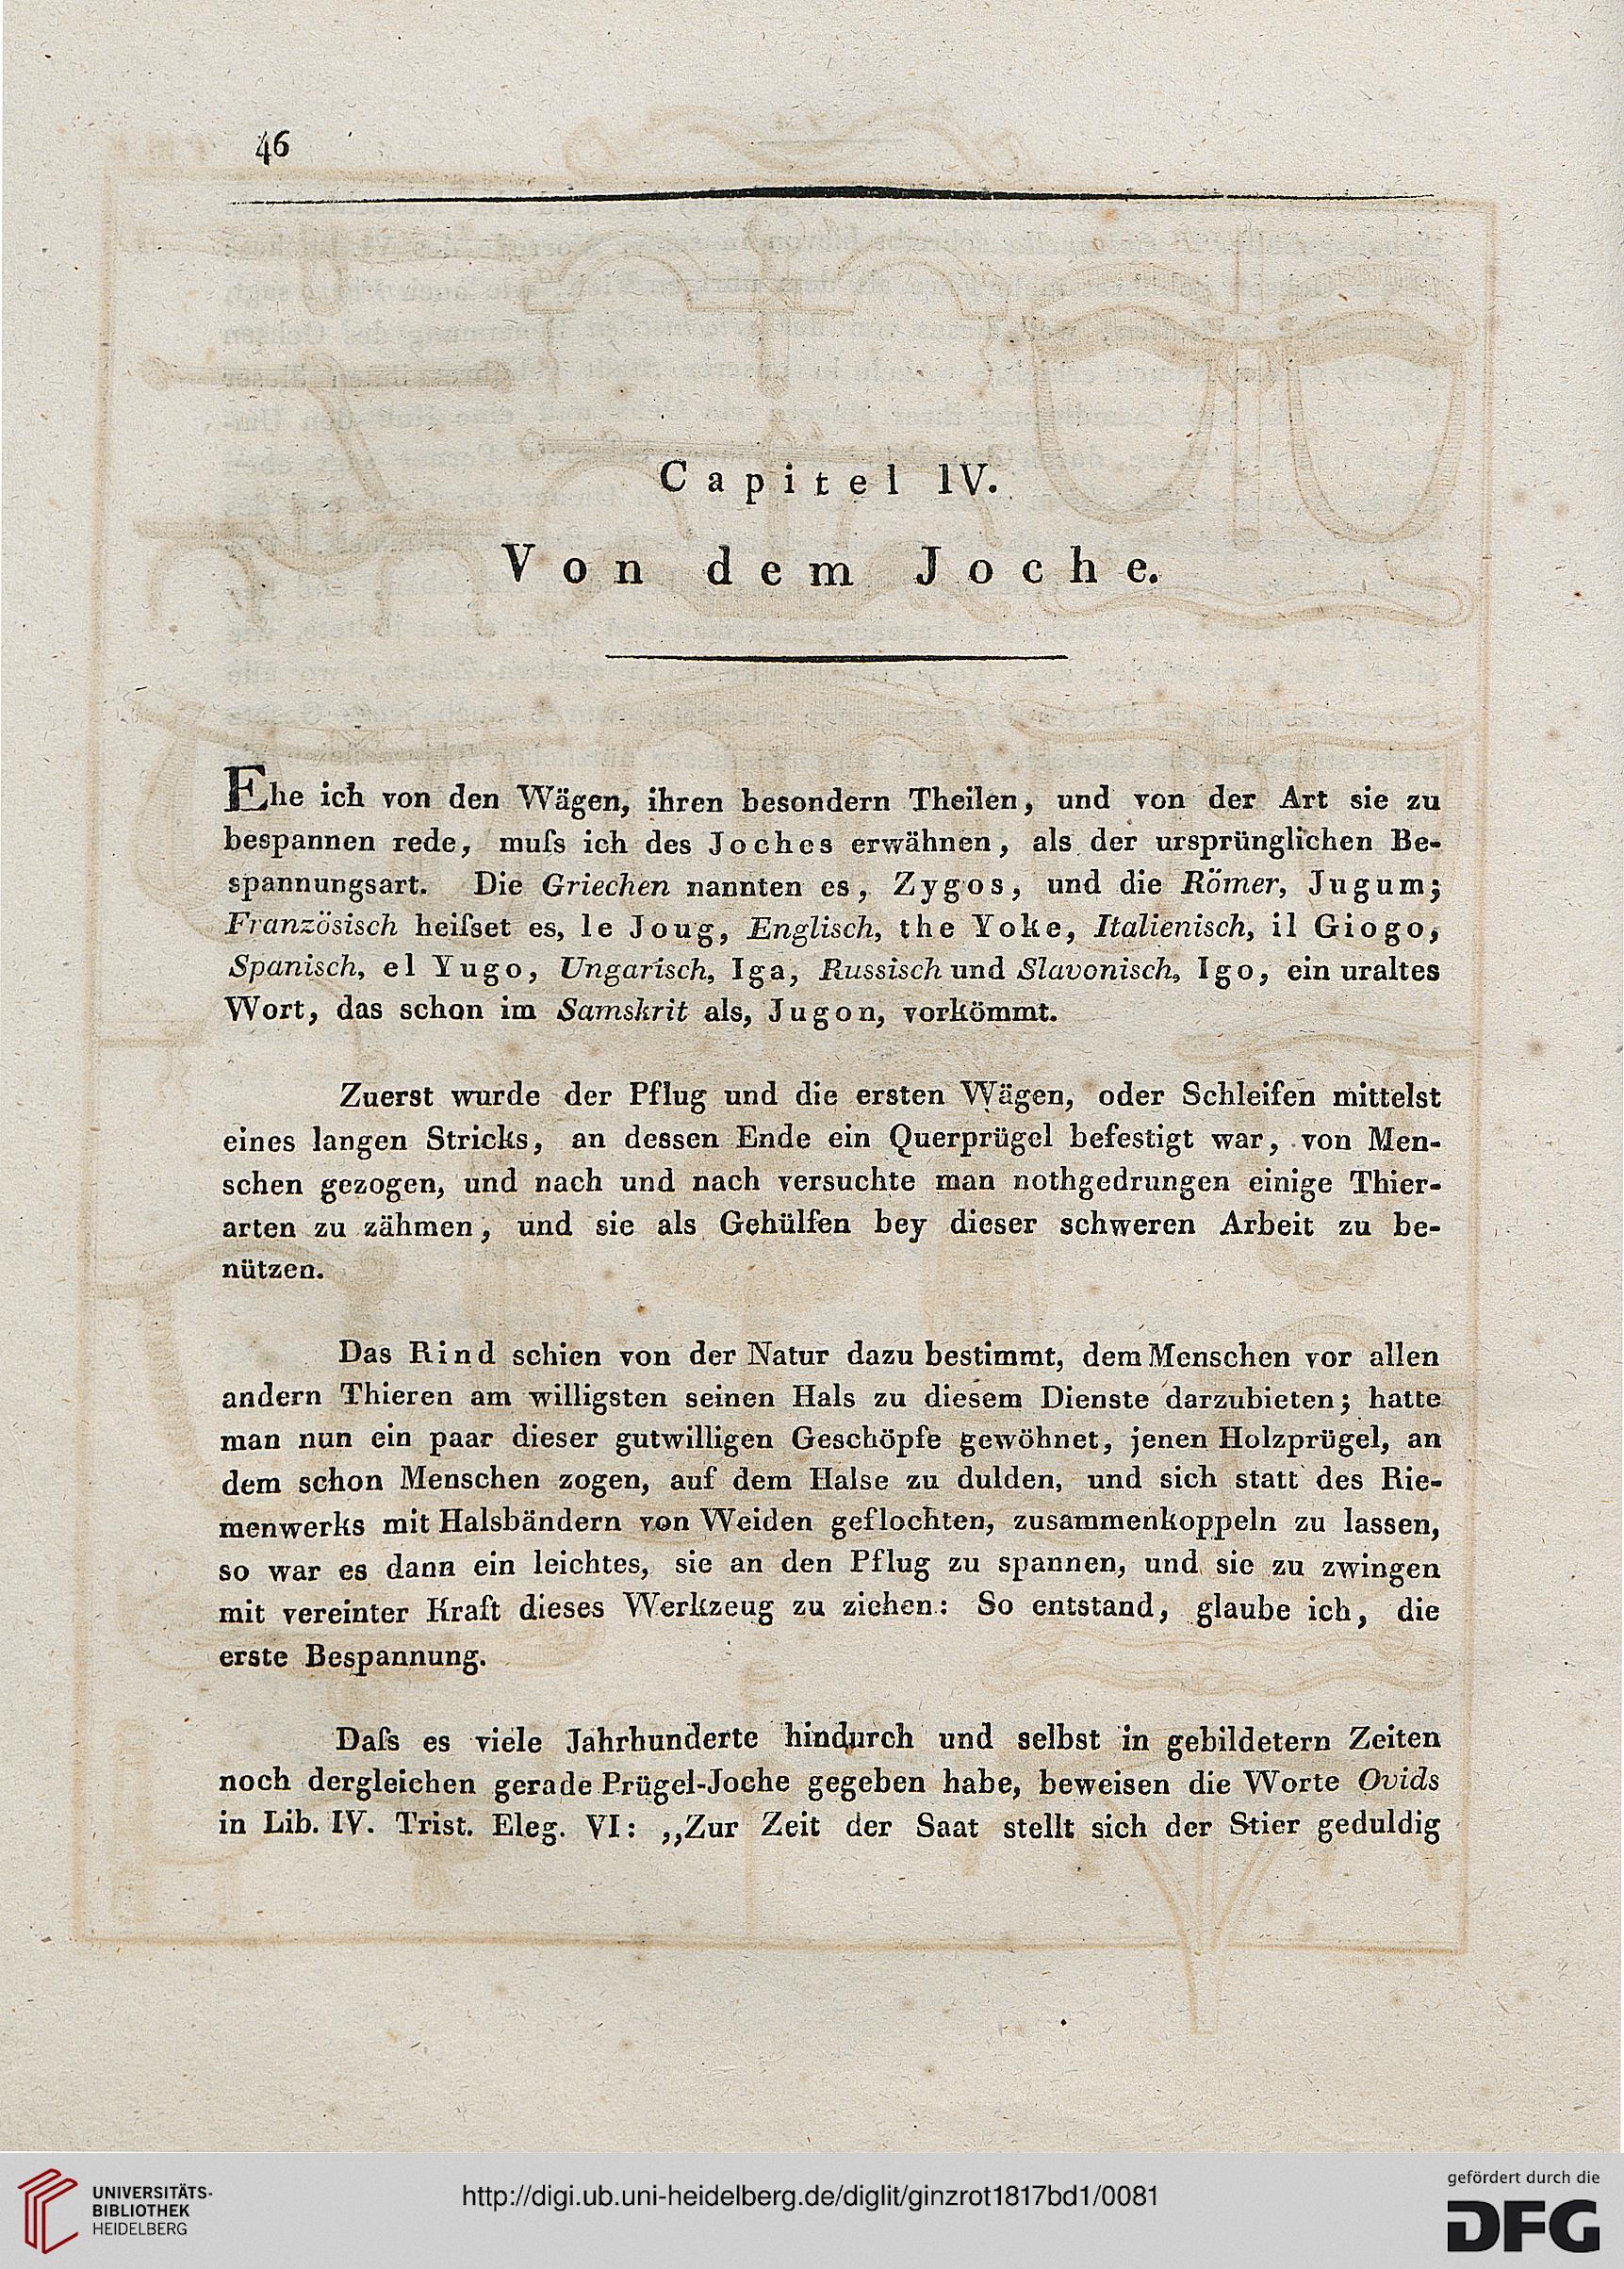 46
Capitel IV.
Von dem Joche.
Ehe ich von den Wägen, ihren besondern Theilen, und von der Art sie zu
bespannen rede, muſs ich des Joches erwähnen, als der ursprünglichen Be-
spannungsart. Die Griechen nannten es, Zygos, und die Römer, Jugum;
Französisch heiſset es, le Joug, Englisch, the Yoke, Italienisch, il Giogo,
Spanisch, el Yugo, Ungarisch, Iga, Russisch und Slavonisch, Igo, ein uraltes
Wort, das schon im Samskrit als, Jugon, vorkömmt.
Zuerst wurde der Pflug und die ersten Wägen, oder Schleifen mittelst
eines langen Stricks, an dessen Ende ein Querprügel befestigt war, von Men-
schen gezogen, und nach und nach versuchte man nothgedrungen einige Thier-
arten zu zähmen, und sie als Gehülfen bey dieser schweren Arbeit zu be-
nützen.
Das Rind schien von der Natur dazu bestimmt, dem Menschen vor allen
andern Thieren am willigsten seinen Hals zu diesem Dienste darzubieten; hatte
man nun ein paar dieser gutwilligen Geschöpfe gewöhnet, jenen Holzprügel, an
dem schon Menschen zogen, auf dem Halse zu dulden, und sich statt des Rie-
menwerks mit Halsbändern von Weiden geflochten, zusammenkoppeln zu lassen,
so war es dann ein leichtes, sie an den Pflug zu spannen, und sie zu zwingen
mit vereinter Kraft dieses Werkzeug zu ziehen: So entstand, glaube ich, die
erste Bespannung.
Daſs es viele Jahrhunderte hindurch und selbst in gebildetern Zeiten
noch dergleichen gerade Prügel-Joche gegeben habe, beweisen die Worte Ovids
in Lib. IV. Trist. Eleg. VI: ,,Zur Zeit der Saat stellt sich der Stier geduldig
UNIVERSITÄTS-
BIBLIOTHEK
HEIDELBERG
http://digi.ub.uni-heidelberg.de/diglit/ginzrot1817bd1/0081
gefördert durch die
DFG